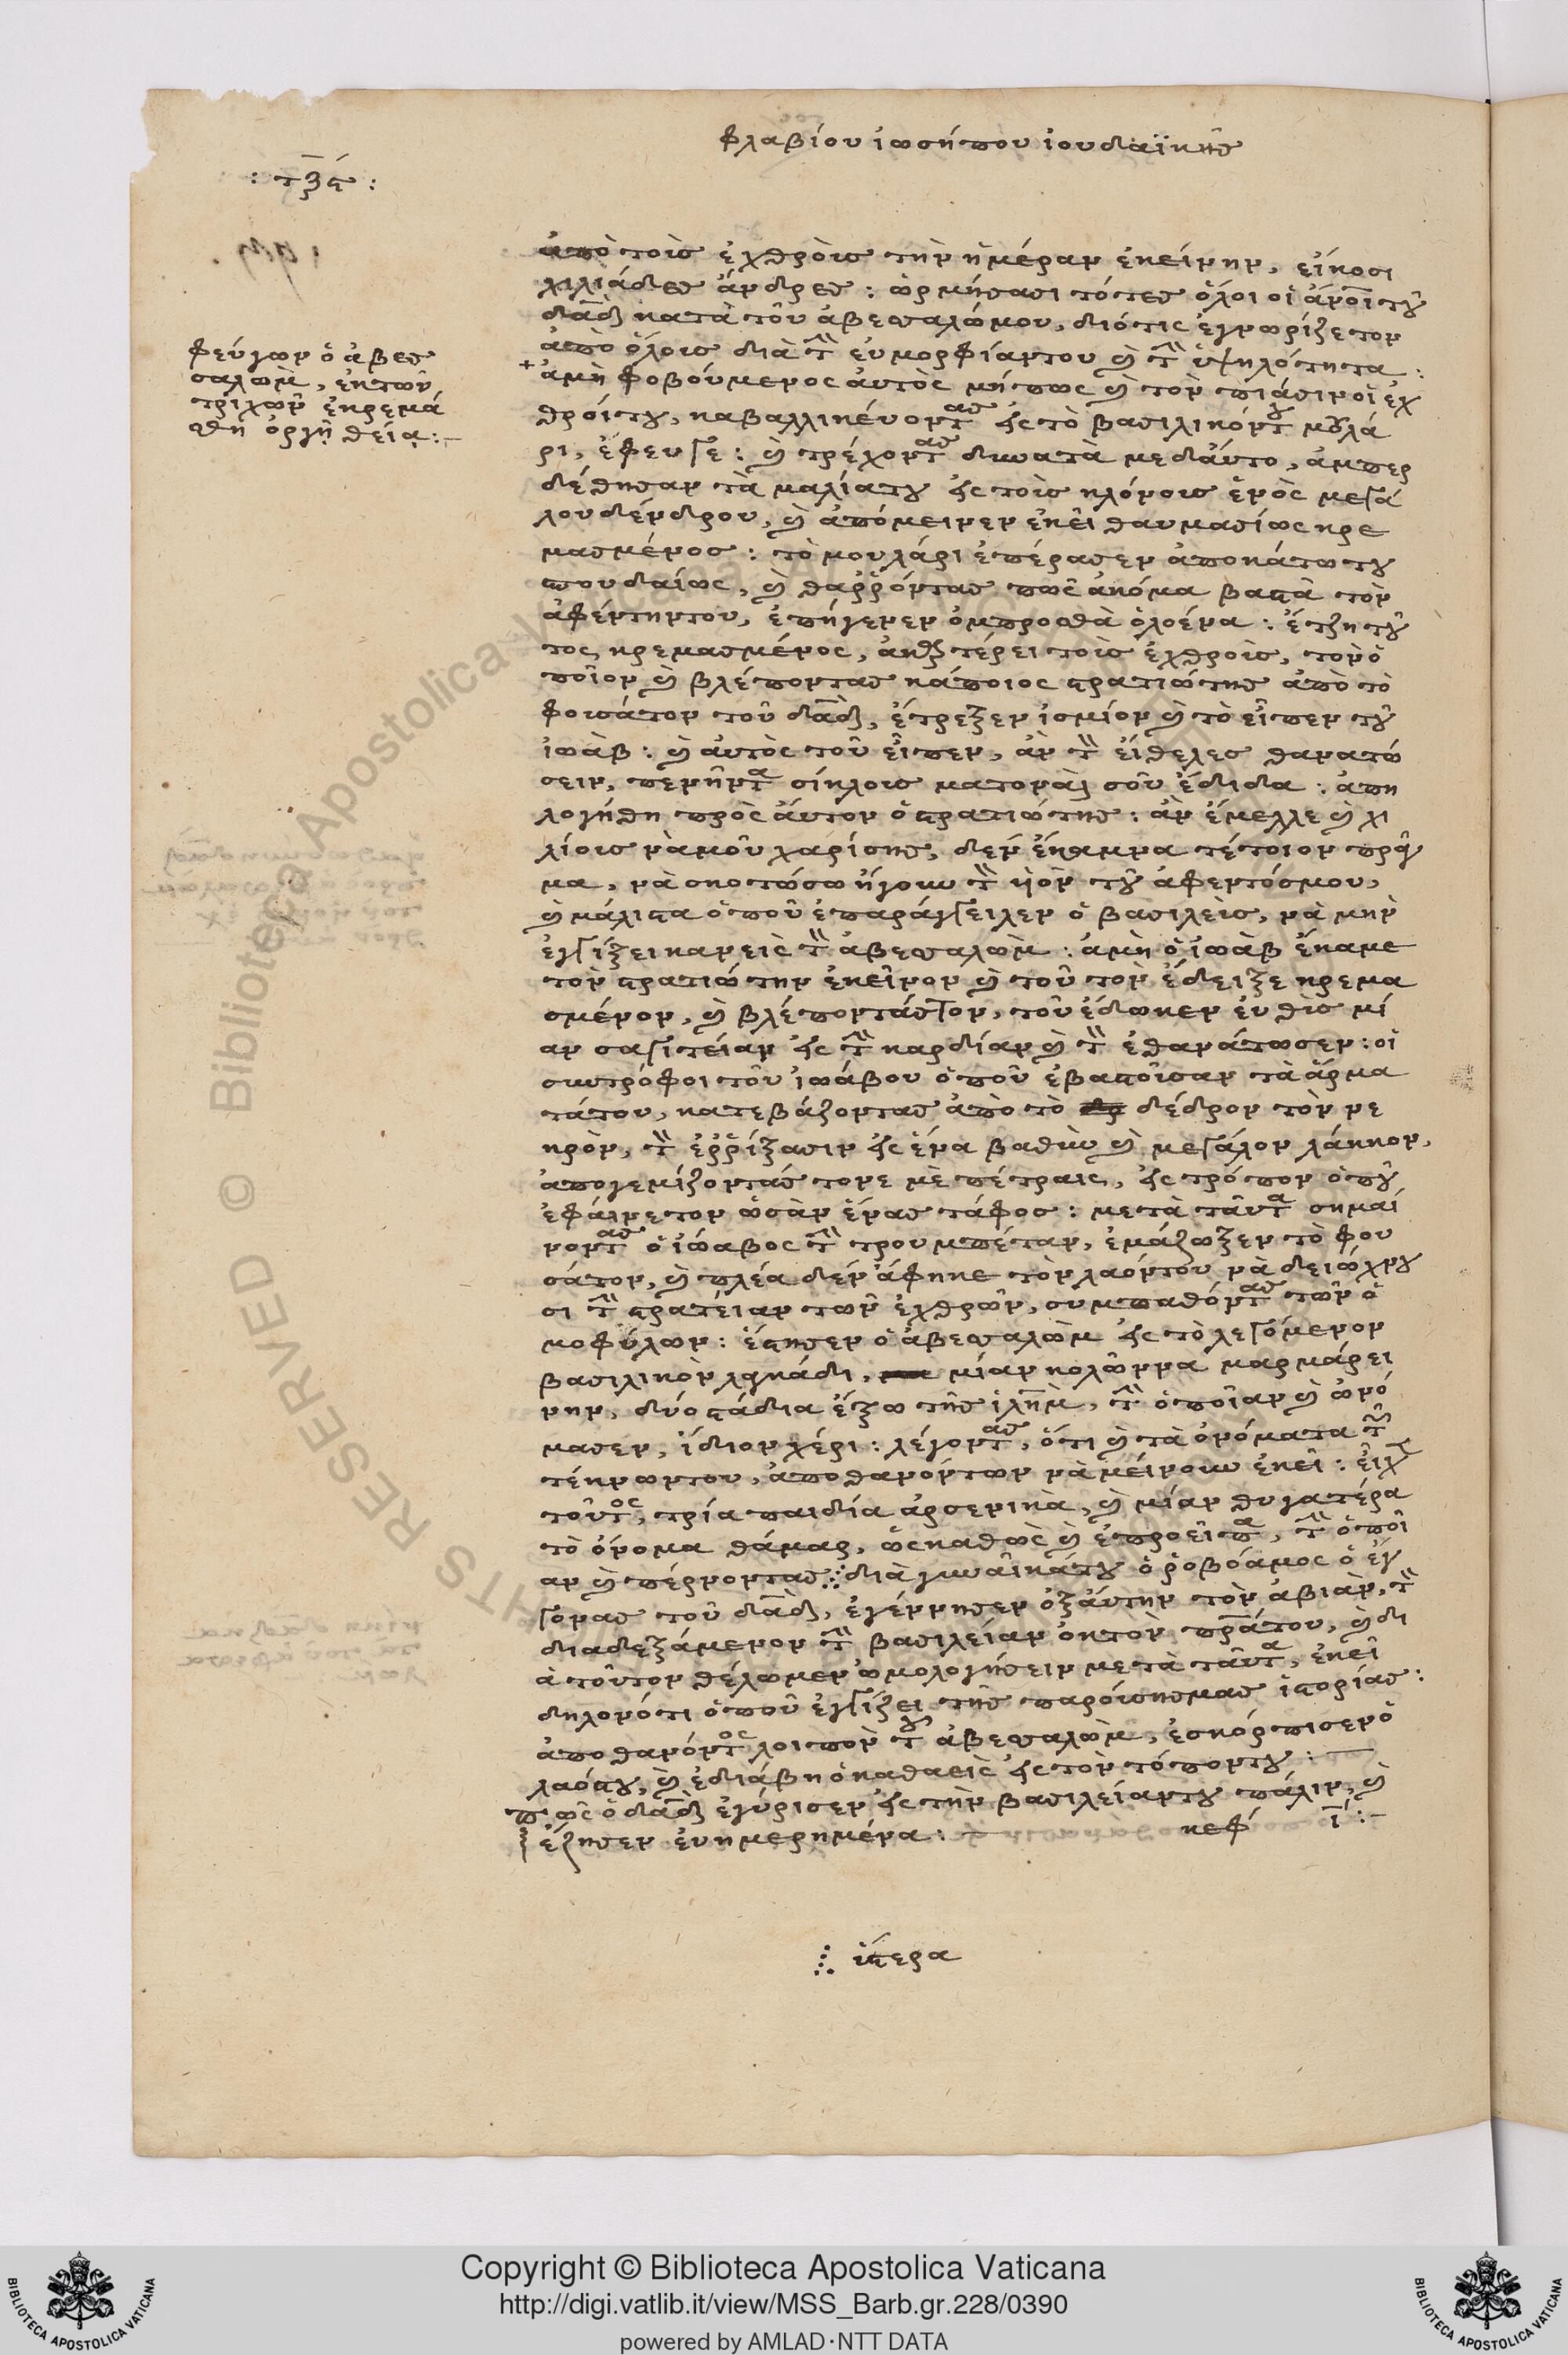 φλαβίου ἰωσήπου ἰουδαϊκῆς
: τξς :
φεύγων ὁ ἀβεσ
σαλὼμ, ἐκ τῶν
τριχῶν ἐκρεμά
σθη ὀργῇ θεία :-
ἀπὸ τοὶς ἐχθροὶς τὴν ἡμέραν ἐκείνην, εἴκοσι
χιλιάδες ἄνδρες : ὡρμήσασι τότες ὅλοι οἱ ἄνοι τοῦ
δαδ κατὰ τοῦ ἀβεσαλώμου, διότις ἐγνωρίζετον
ἀπὸ ὅλοις διὰ τὴν εὐμορφίαντου καὶ τὴν ὑψηλότητα :
+ ἀμὴ φοβούμενος ἀυτὸς μήπως καὶ τὸν πιάσιν οἱ ἐχ
θροίτου, καβαλλικέυοντας εἰς τὸ βασιλικόντου μουλά
ρι, ἔφευγε : καὶ τρέχοντας δυνατὰ μεδἀύτο, ἀμπερ
δέθησαν τὰ μαλίατου εἰς τοὶς κλόνοις ἑνὸς μεγά
λου δένδρου, καὶ ἀπόμεινεν ἐκεῖ θαυμασίως κρε
μασμένος : τὸ μουλάρι ἐπέρασεν ἀποκάτωτου
σπουδαίως, καὶ θαῤῥόντας πῶς ἀκόμα βαστὰ τὸν
ἀφέντηντου, ἐπήγενεν ὀμπροσθὰ ὁλοένα : ἔτζη τοῦ
τος κρεμασμένος, ἀκαρτέρει τοὶς ἐχθροὶς, τον ὁ
ποῖον καὶ βλέποντας κάποιος στρατιώτης ἀπὸ τὸ
φουσάτον τοῦ δαδ, ἔτρεξεν ἰσμίον καὶ τὸ εἶπεν τοῦ
ἰωάβ : καὶ ἀυτὸς τοῦ εἶπεν, ἂν τὸν ἤθελες θανατώ
σειν, πενῆντα σίκλοις ματοναὶ σοῦ ἔδιδα : ἀπη
λογήθη πρὸς ἀύτον ὁ στρατιώτης : ἂν ἔμελλε καὶ χι
λίοις νὰ μοῦ χαρίσης, δὲν ἔκαμνα τέτοιον πρᾶγ
μα, νὰ σκοτώσω ἤγουν τὸν ὑὸν τοῦ ἀφεντόσμου,
καὶ μάλιστα ὁποῦ ἐπαράγγειλεν ὁ βασιλεὶς, νὰ μὴν
ἐγγίξει κανεὶς τὸν ἀβεσαλὼμ : ἀμὴ ὁ ἰωὰβ ἔκαμε
τὸν στρατιώτην ἐκεῖνον καὶ τοῦ τὸν ἔδειξε κρεμα
σμένον, καὶ βλέποντάςτον, τοῦ ἔδωκεν ἐυθὶς μί
αν σαγιτείαν εἰς τὴν καρδίαν καὶ τὸν ἐθανάτωσεν : οἱ
συντρόφοι τοῦ ἰωάβου ὁποῦ ἐβαστοῦσαν τὰ ἄρμα
τάτου, κατεβάζοντας ἀπὸ τὸ δέδρον τὸν νε
κρὸν, τὸν ἐῤῥίξασιν εἰς ἕνα βαθὺν καὶ μεγάλον λάκκον,
ἀπογεμίζοντάς τονε μὲ πέτραις, εἰς τρόπον ὁποῦ
ἐφάινετον ὡσὰν ἕνας τάφος : μετὰ ταῦτα σημαί
νοντας ὁ ἰώαβος τὴν τρουμπέταν, ἐμάζωξεν τὸ φου
σάτον, καὶ πλέα δὲν ἄφηκε τὸν λαόντου νὰ δειώχνου
σι τὴν στρατείαν τῶν ἐχθρῶν, συμπαθόντας τῶν ὁ
μοφύλων : ἔστησεν ὁ ἀβεσαλὼμ εἰς τὸ λεγόμενον
βασιλικὸν λαγκάδι, μίαν κολῶννα μαρμάρει
νην, δύο στάδια ἔξω τῆς ἱλημ, τὴν ὁποῖαν καὶ ὠνό
μασεν, ἴδιον χέρι : λέγοντας, ὅτι καὶ τὰ ὀνόματα τῶν
τέκνωντου, ἀποθανόντων νὰ μείνουν ἐκεῖ : εἶχε
τοῦτος, τρία παιδία ἀρσενικὰ, καὶ μίαν θυγατέρα
τὸ ὄνομα θάμαρ, ὡς καθὼς καὶ ἐπροεῖπα, τὴν ὁποῖ
αν καὶ πέρνοντας διὰ γυναῖκάτου ὁ ῥοβόαμος ὁ ἐγ
γονας τοῦ δαδ, ἐγέννησεν ὀξἀύτην τὸν ἀβιὰν, τὸν
διαδεξάμενον τὴν βασιλείαν ὀκτὸν πράτου, καὶ δι
ὰ τοῦτον θέλωμεν ὡμολογήσειν μετὰ ταῦτα, ἐκεῖ
δηλονότι ὁποῦ ἐγγίζει τῆς παρόυσησμας ἱστορίας :
ἀποθανόντος λοιπὸν τοῦ ἀβεσαλὼμ, ἐσκόρπισεν ὁ
λαόςτου, καὶ ἐδιάβη ὁ καθαεὶς εἰς τὸν τόποντου :
πῶς ὁ δαδ ἐγύρισεν εἰς τὴν βασιλείαντου πάλιν, καὶ
ἔζησεν ἐυημερημένα : κεφ ι :-
ὕστερα
Copyright © Biblioteca Apostolica Vaticana
http://digi.vatlib.it/view/MSS_Barb.gr.228/0390
powered by AMLAD·NTT DATA